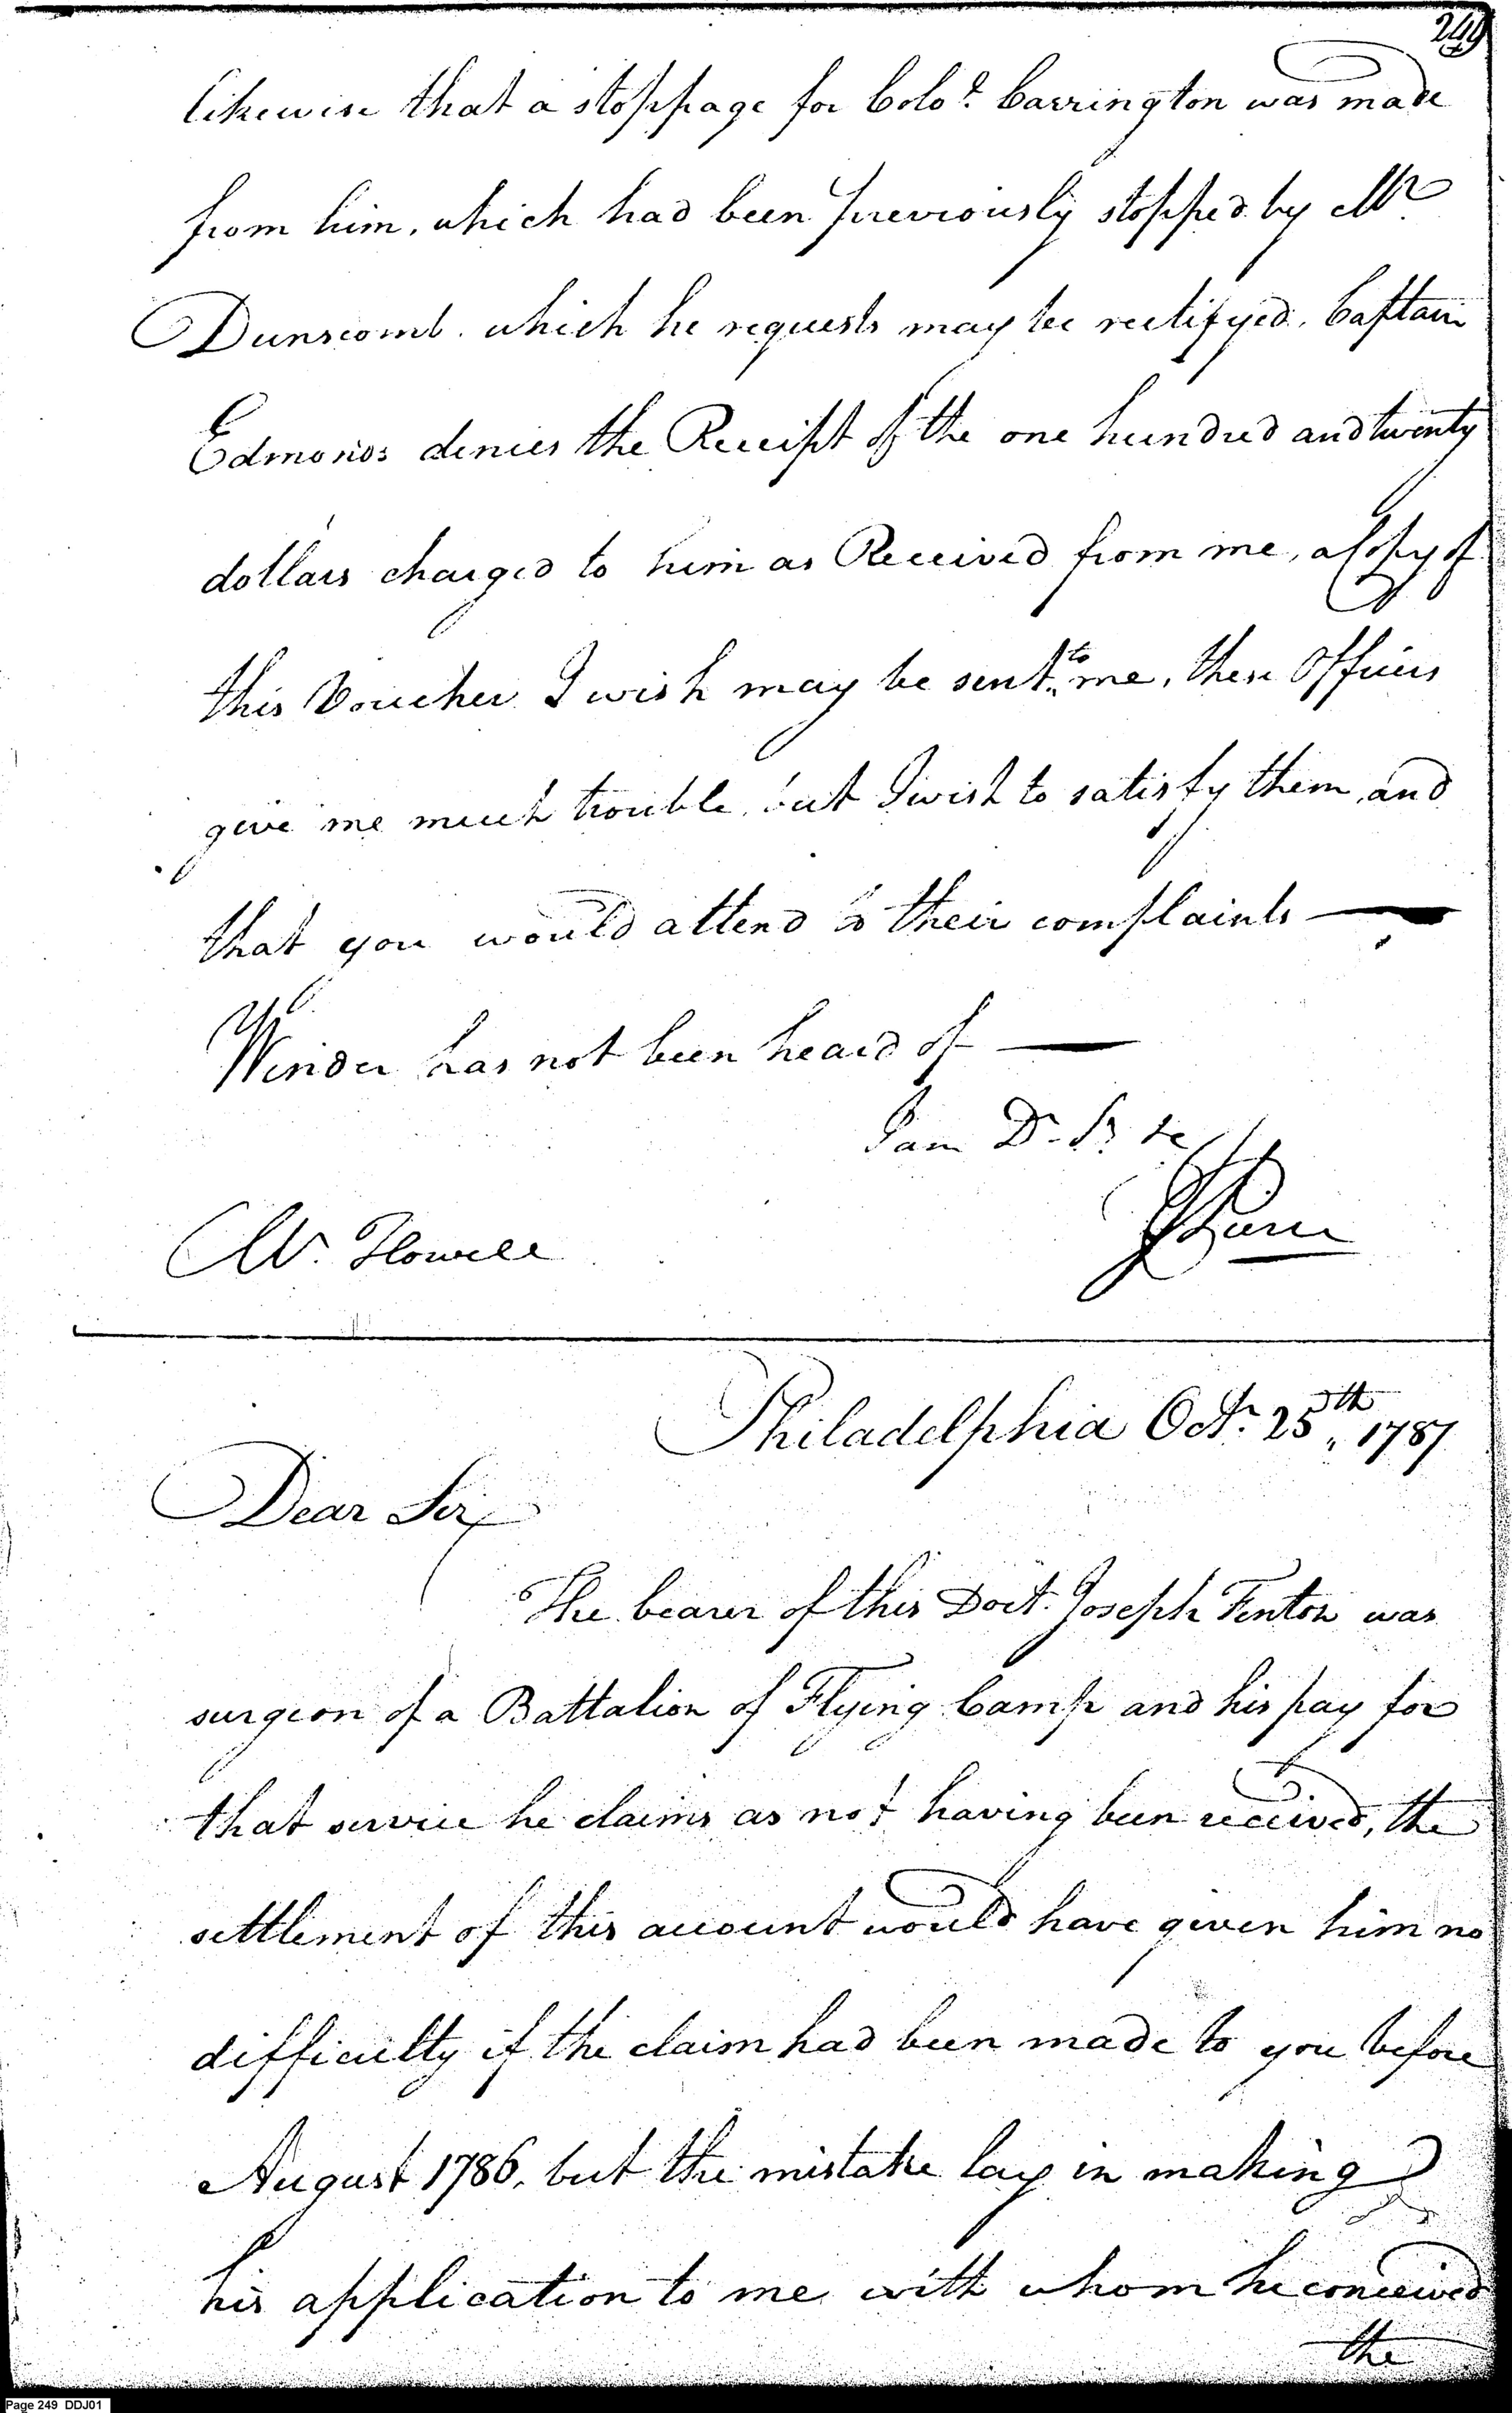 249
likewise that a stoppage for Colo.. Carrington was made
from him, which had been previously stopped by Mr
Dunscomb. which he requests may be rectifyed. Captain
Edmonds denies the Receipt of the one hundred and twenty
dollars charged to him as Received from me, a Copy of
this Voucher I wish may be sent to me, these Officers
give me much trouble, but I wish to satisfy them, and
that you would attend to their complaints —
Winder has not been heard of —
I am Dr. Sr. &c
Mr. Howell
Philadelphia Octr. 25th 1787
Dear Sir
The bearer of this Doct. Joseph Fenton was
surgeon of a Battalion of Flying Camp and his pay for
that service he claims as not having been received, the
settlement of this account would have given him no
difficulty if the claim had been made to you before
August 1786, but the mistake lay in making
his application to me with whom he conceived
the
Page 249 DDJ01